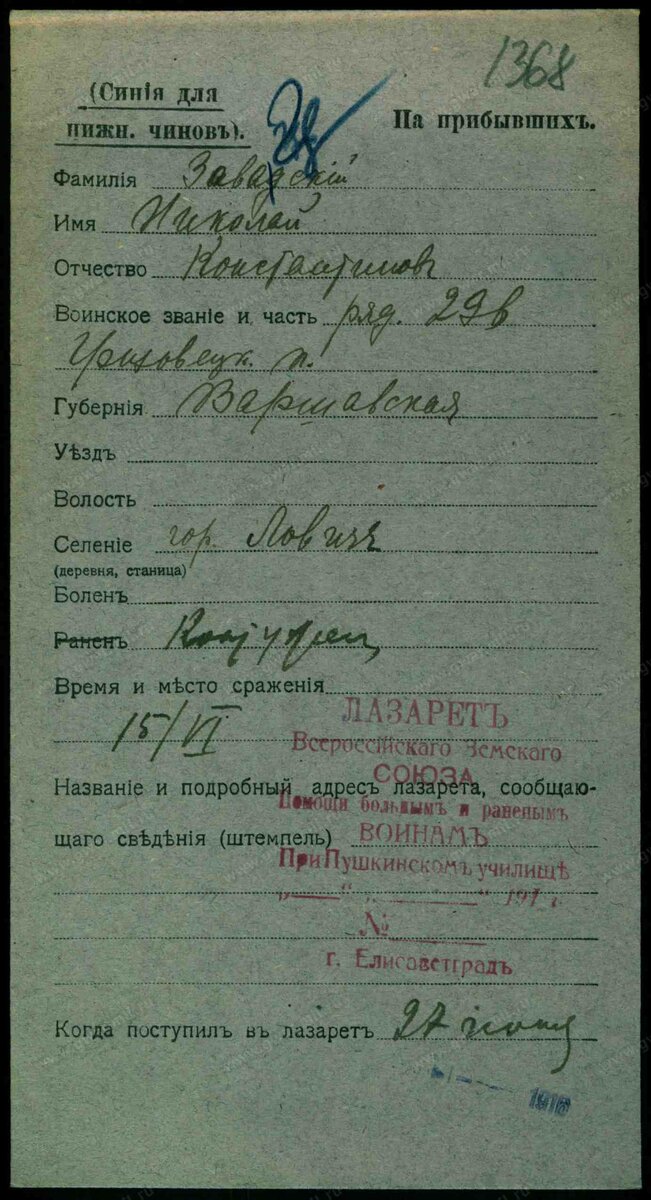 1368
(Синія для
нижн. чиновъ).
На прибывшихъ.
Фамилія Завадскій
Имя Николай
Отчество Константиновъ
Воинское званіе и часть ряд. 298
п.
Губернія Варшавская
Уѣздъ
Волость
Селеніе гор. Ловичъ
(деревня, станица)
Боленъ
Раненъ Контужен
Время и мѣсто сраженія
15/VI
Названіе и подробный адресъ лазарета, сообщаю-
щаго свѣдѣнія (штемпель)
ЛАЗАРЕТЪ
Всероссійскаго Земскаго
СОЮЗА
Помощи больнымъ и раненымъ
ВОИНАМЪ
При Пушкинскомъ училищѣ
„ “ „ “ 191 г.
№
г. Елисаветградъ
Когда поступилъ въ лазаретъ 27 июня